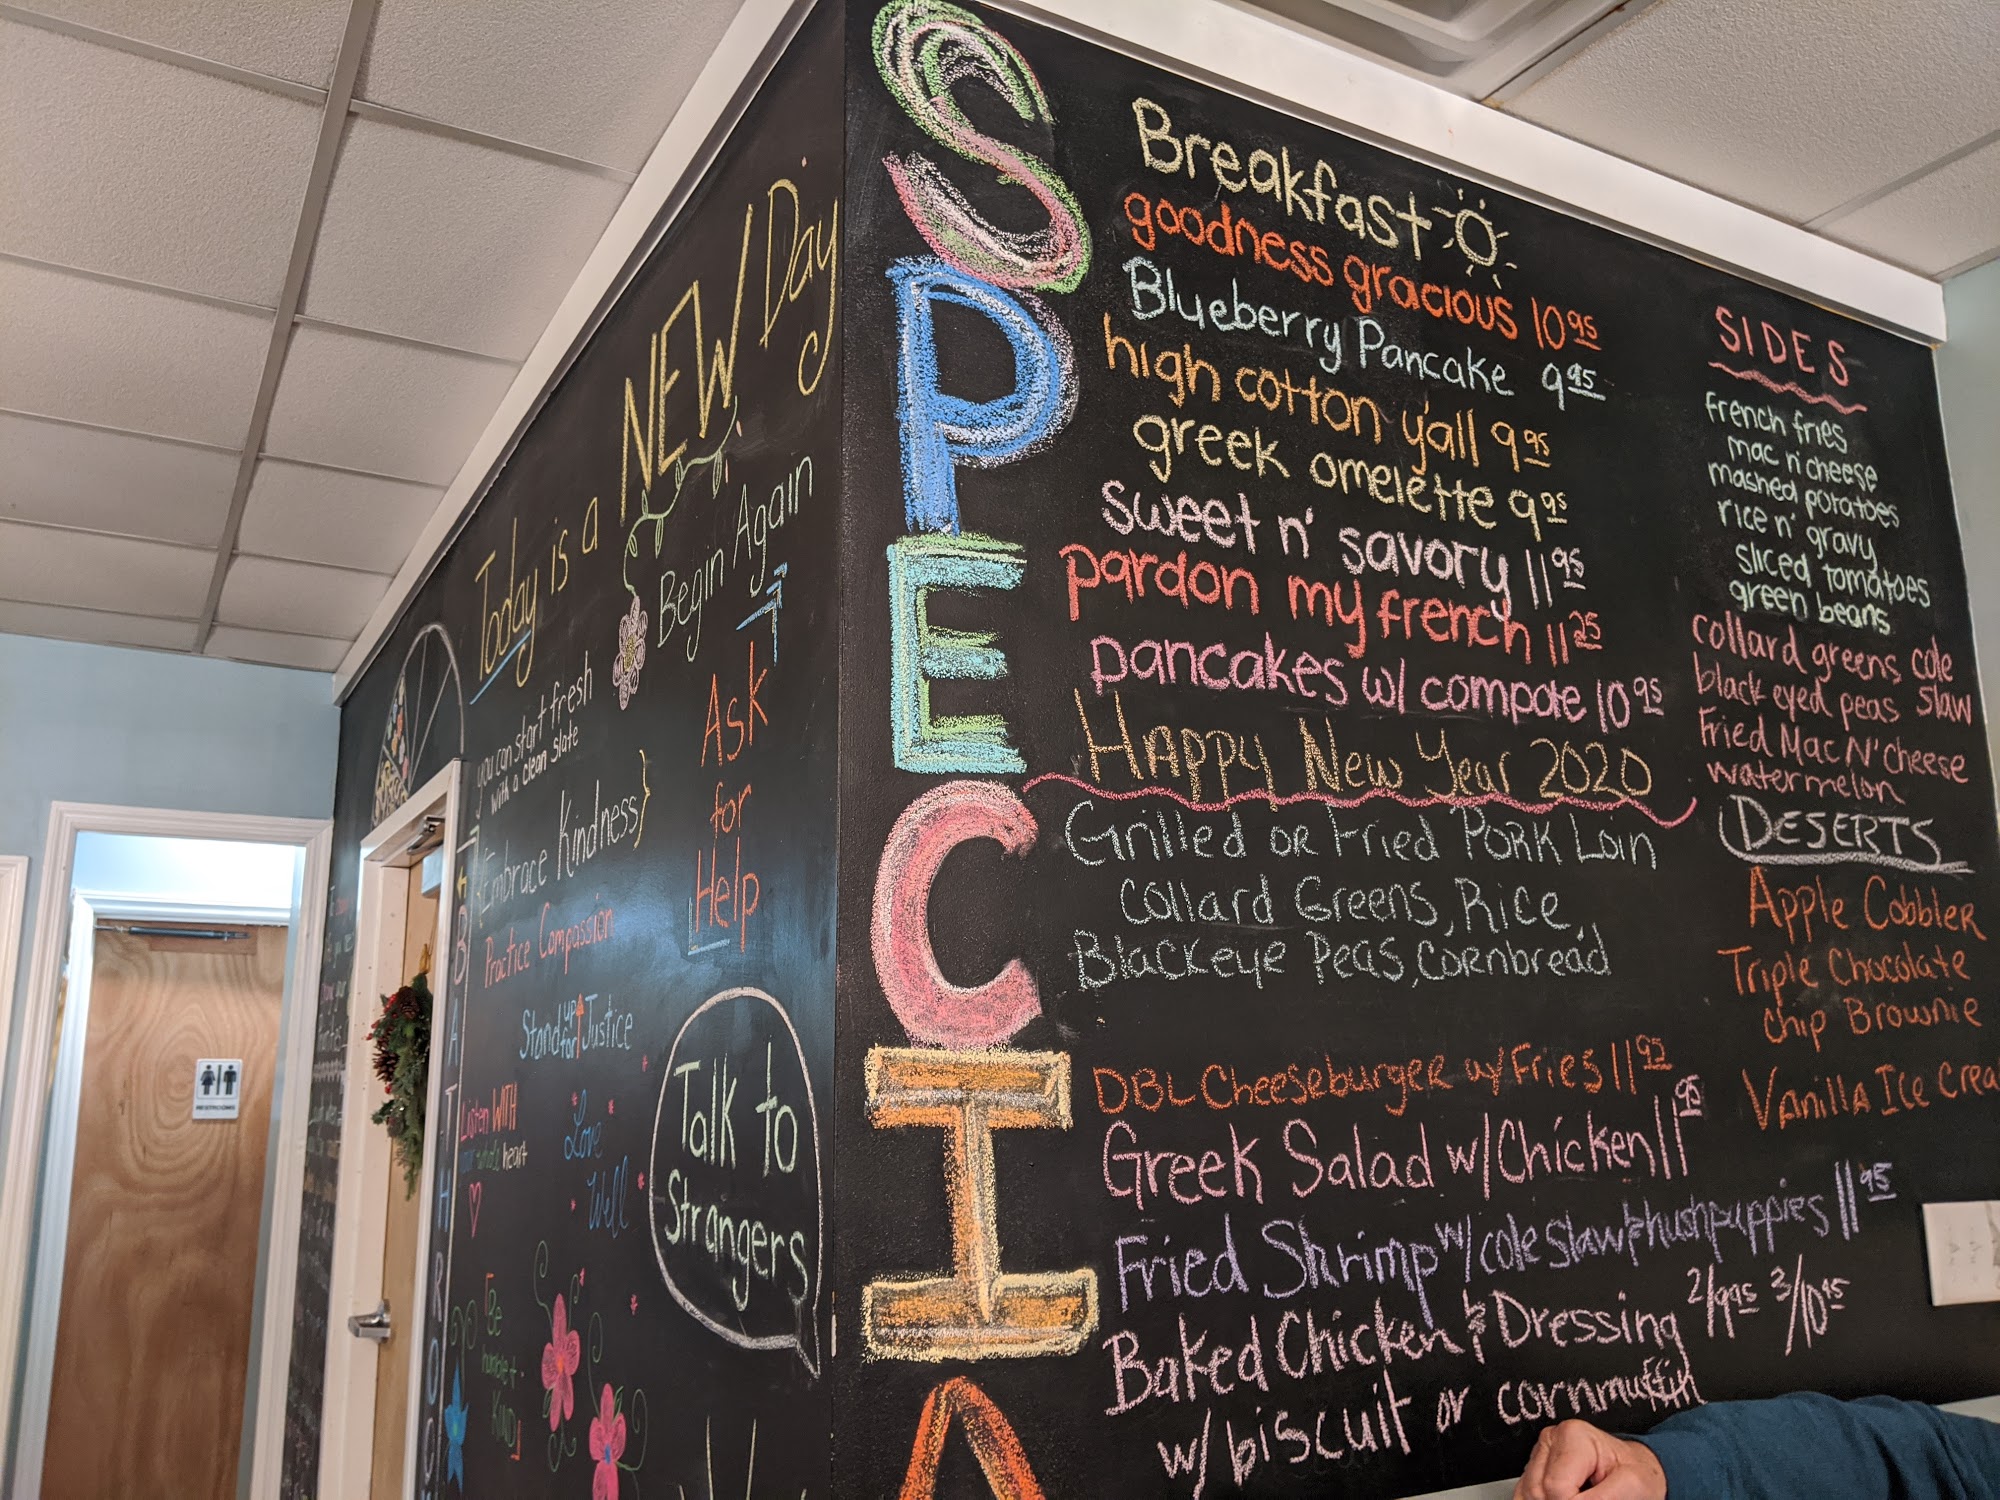 Today is a NEW Day
you can start fresh
with a clean slate
Begin Again
Embrace Kindness
Ask
for
Help
Practice Compassion
Stand up for Justice
Listen WITH
whole heart
Love
Well
Talk to
Strangers
Be
humble +
Kind
BATHROO
RESTROOMS
SPECIA
Breakfast
goodness gracious 10 95
Blueberry Pancake 9 95
high cotton y'all 9 95
greek omelette 9 95
sweet n' savory 11 95
pardon my french 11 25
pancakes w/ compote 10 95
Happy New Year 2020
Grilled or Fried Pork Loin
Collard Greens, Rice,
Blackeye Peas, Cornbread
DBL Cheeseburger w/ Fries 11 95
Greek Salad w/ Chicken 11 95
Fried Shrimp w/ cole slaw & hushpuppies 11 95
Baked Chicken & Dressing 2/9 95 3/10 95
w/ biscuit or cornmuffin
SIDES
french fries
mac n' cheese
mashed potatoes
rice n' gravy
sliced tomatoes
green beans
collard greens cole
black eyed peas slaw
Fried Mac N' Cheese
watermelon
DESERTS
Apple Cobbler
Triple Chocolate
Chip Brownie
Vanilla Ice Crea